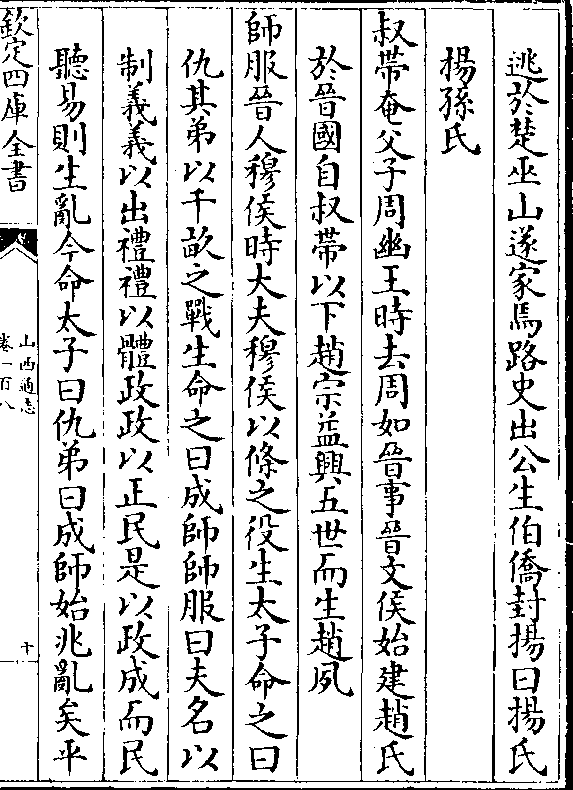 逃於楚巫山遂家焉路史出公生伯僑封揚曰揚氏
楊孫氏
叔帶奄父子周幽王時去周如晉事晉文侯始建趙氏
於晉國自叔帶以下趙宗益興五世而生趙夙
師服晉人穆侯時大夫穆侯以條之役生太子命之曰
仇其弟以千畝之戰生命之曰成師師服曰夫名以
制義義以出禮禮以體政政以正民是以政成而民
聽易則生亂今命太子曰仇弟曰成師始兆亂矣平
欽定四庫全書
山西通志
卷一百八
十